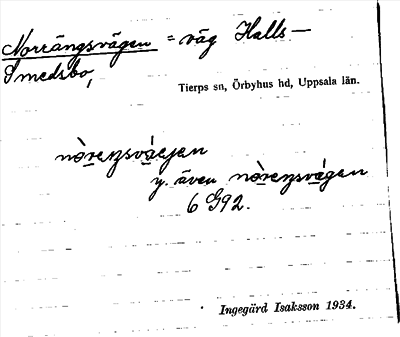 Norrängsvägen = väg Halls—
Smedsbo,
Tierps sn, Örbyhus hd, Uppsala län.
nòrengsvágen
y. även nòrengsvágen
6 G92.
Ingegärd Isaksson 1934.